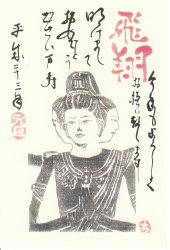 飛翔
今年もよろしく
お願い致します
明けまして
おめでとう
ございます
平成二十三年